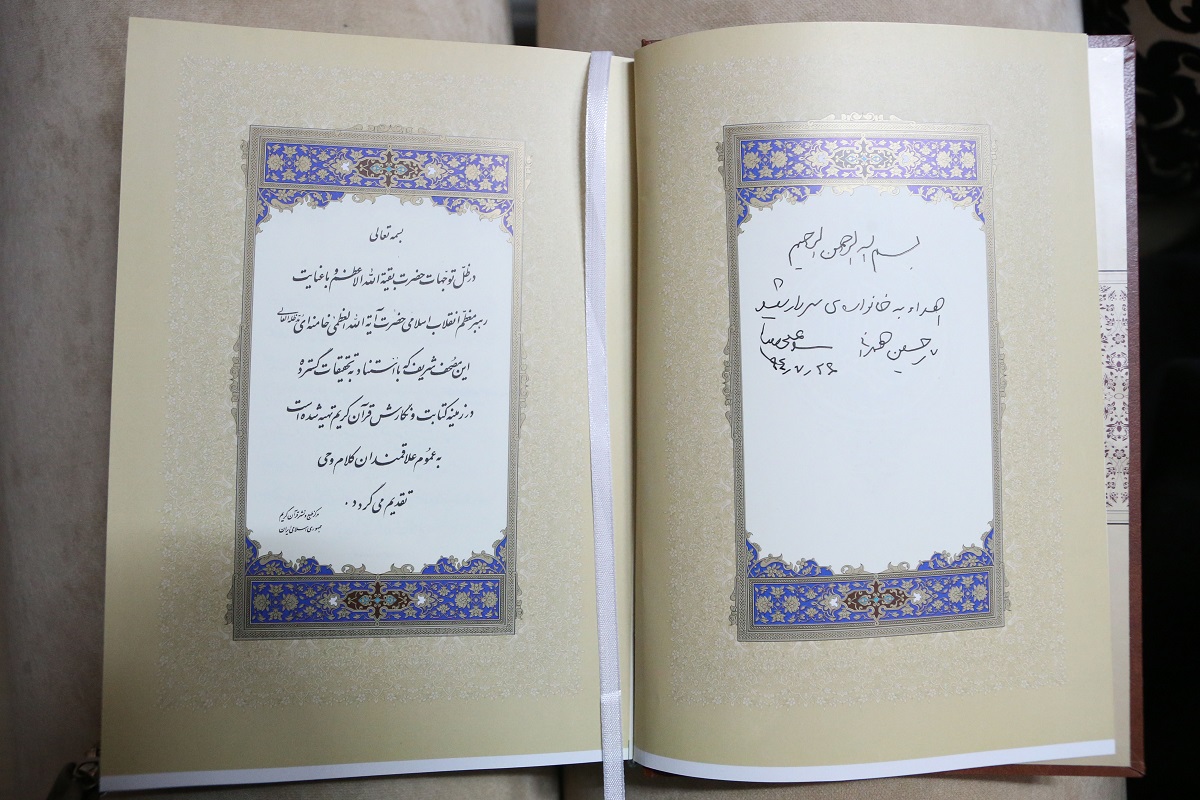 بسم الله الرحمن الرحیم
اهداء به خانواده‌ی سردار شهید
حسین همدانی
۹۴٫۷٫۲۶
بسمه تعالی
در ظلّ توجّهات حضرت بقیة الله الاعظم و با عنایت
رهبر معظّم انقلاب اسلامی حضرت آیة الله العظمی خامنه‌ای مدظله العالی
این مصحف شریف که با استناد به تحقیقات گسترده
در زمینه کتابت و نگارش قرآن کریم تهیه شده است
به عموم علاقمندان کلام وحی
تقدیم می گردد .
مرکز طبع و نشر قرآن کریم
جمهوری اسلامی ایران